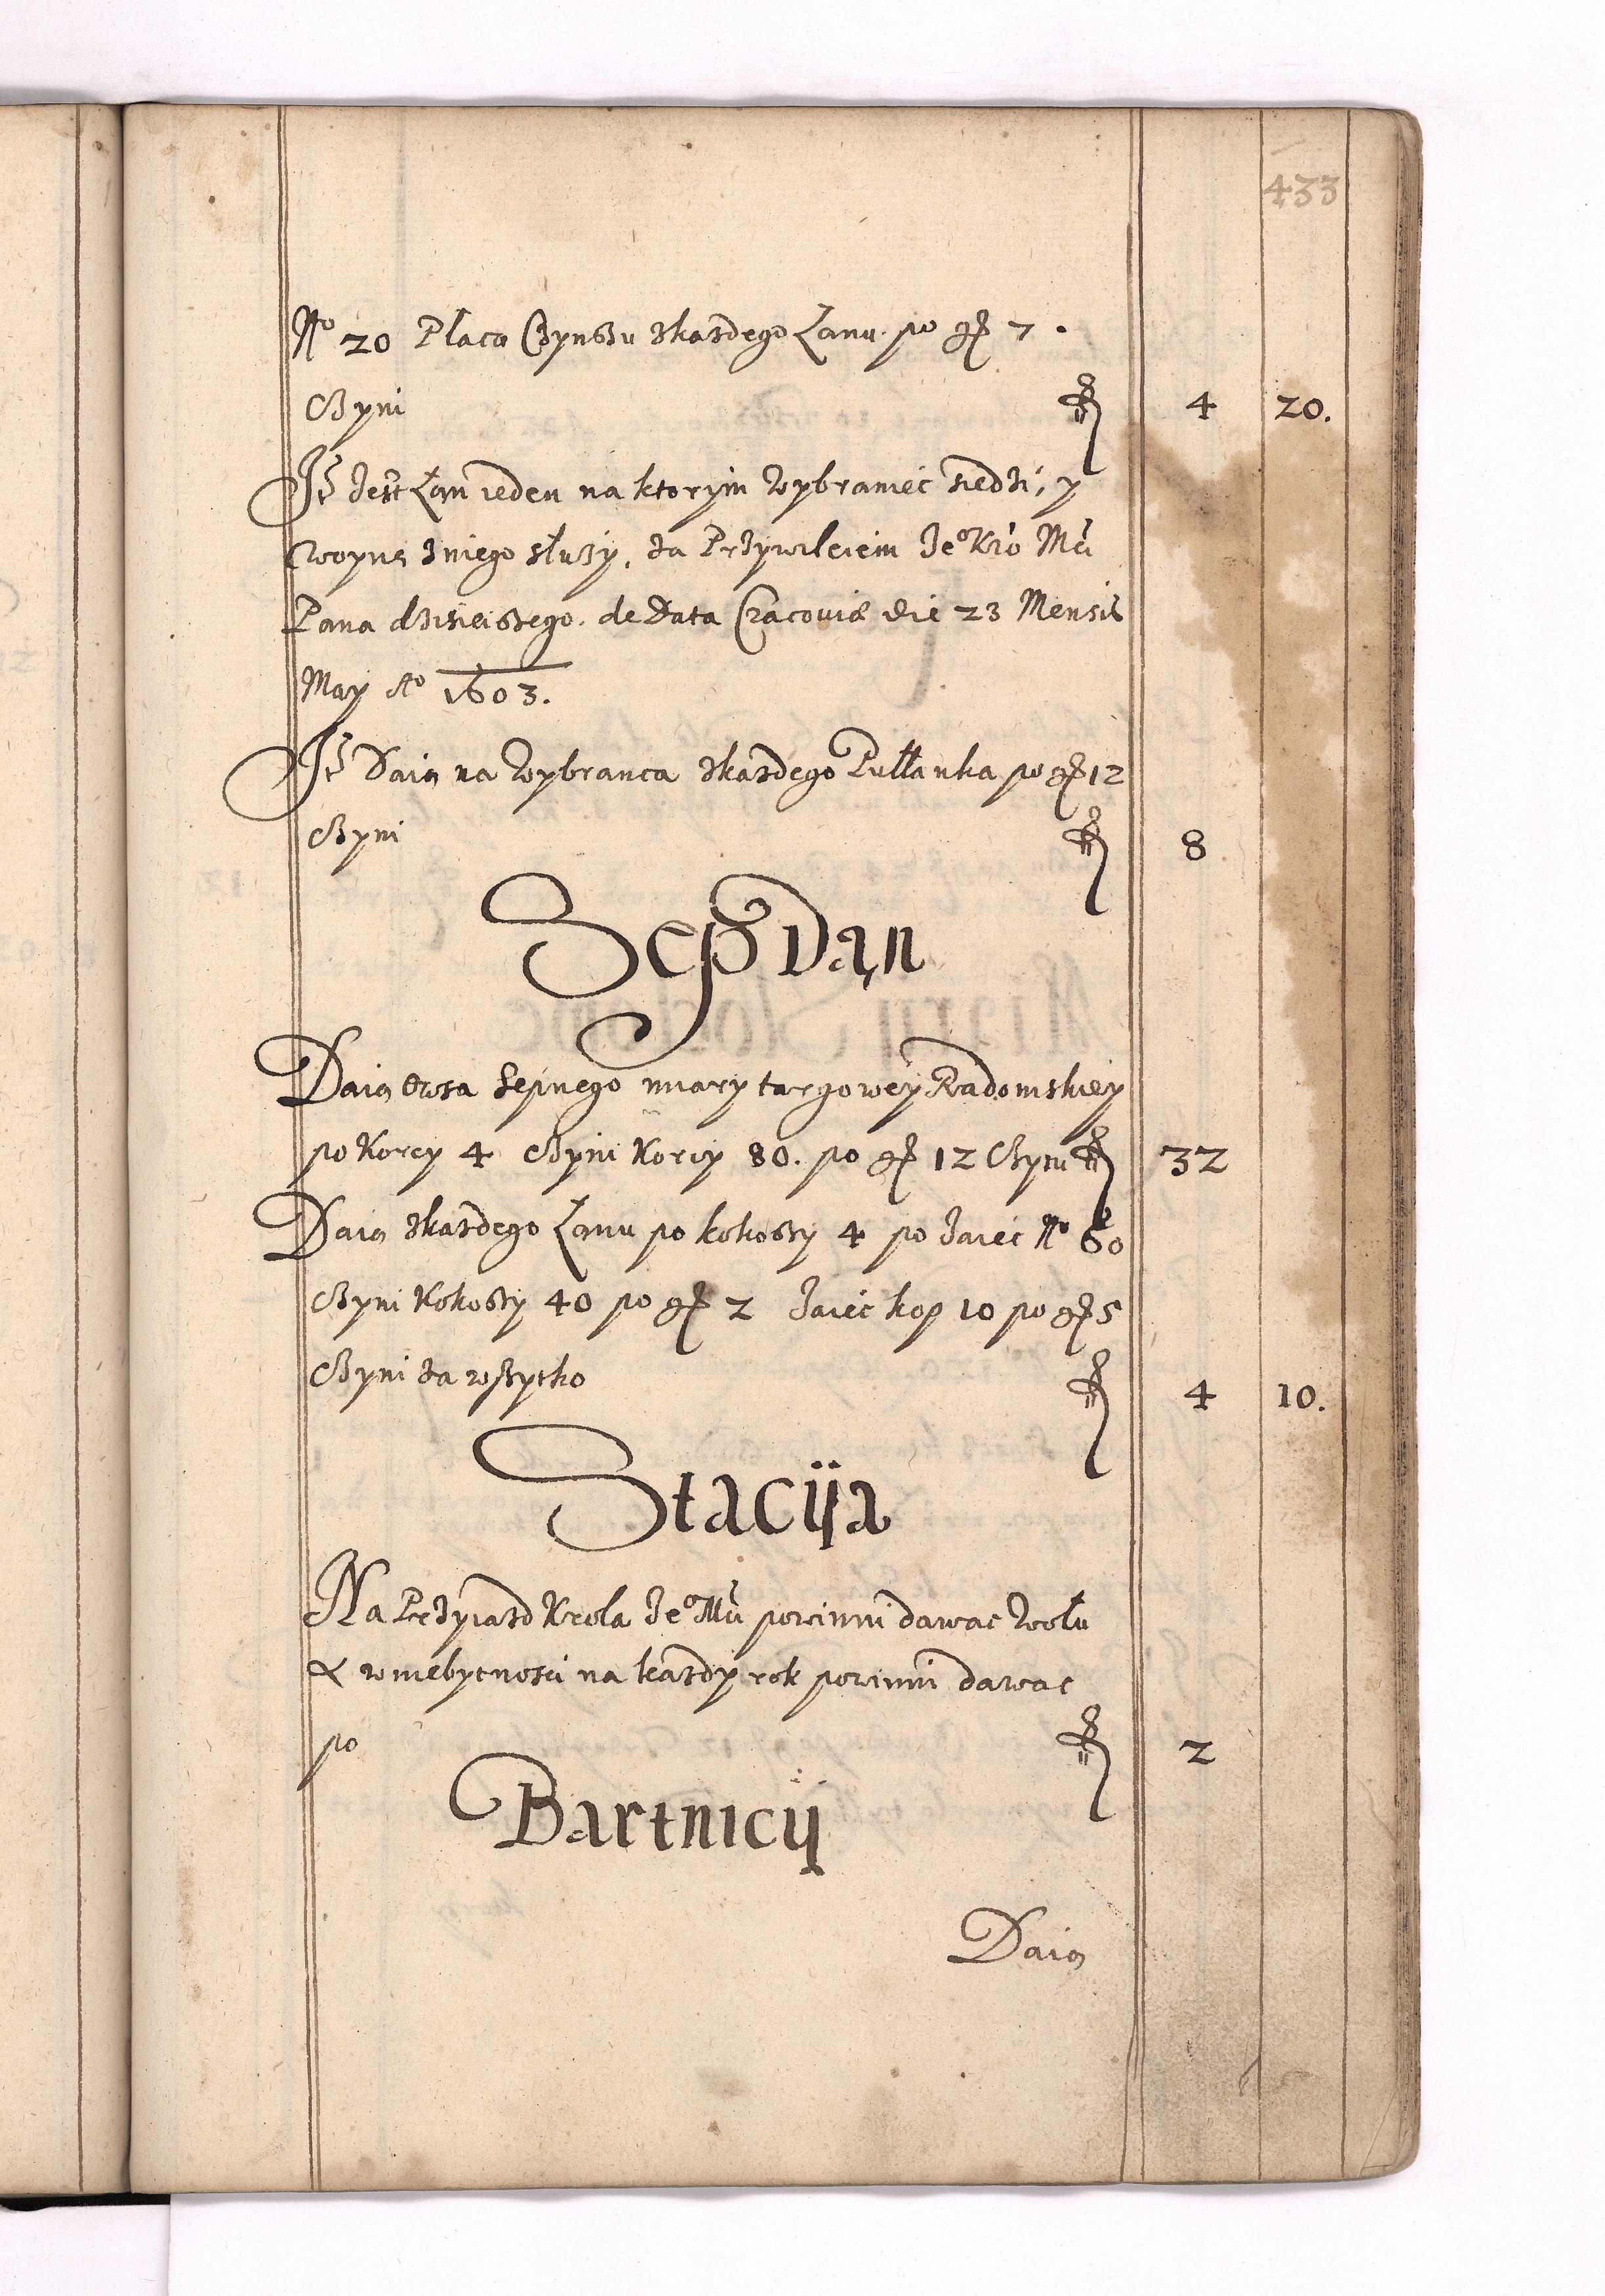 433
No 20 Płacą Czynszu zkazdego Łanu po gr 7.
Czyni fl 4 20.
It Jest Łan ieden na ktorym Wybraniec siedzi, y
Woynę zniego słuzy, za Przywileiem Jeo Kró Mci
Pana dzisieiszego. de Data Cracoviæ die 23 Mensis
May Ao 1603.
It Daią na Wybranca zkazdego Pułłanka po gr 12
Czyni fl 8
Sep Dan
Daią Owsa Sepnego miary targowey Radomskiey
po Korcy 4 Czyni Korcy 80. po gr 12 Czyni fl 32
Daią zkazdego Łanu po kokoszy 4 po Jaiec No 60
Czyni Kokoszy 40 po gr 2 Jaiec kop 10 po gr 5
Czyni za wszytko fl 4 10.
Stacija
Na Przyiazd Krola Jeo Mci powinni dawac Wołu
A wniebytnosci na kazdy rok powinni dawac
po fl 2
Bartnicy
Daią